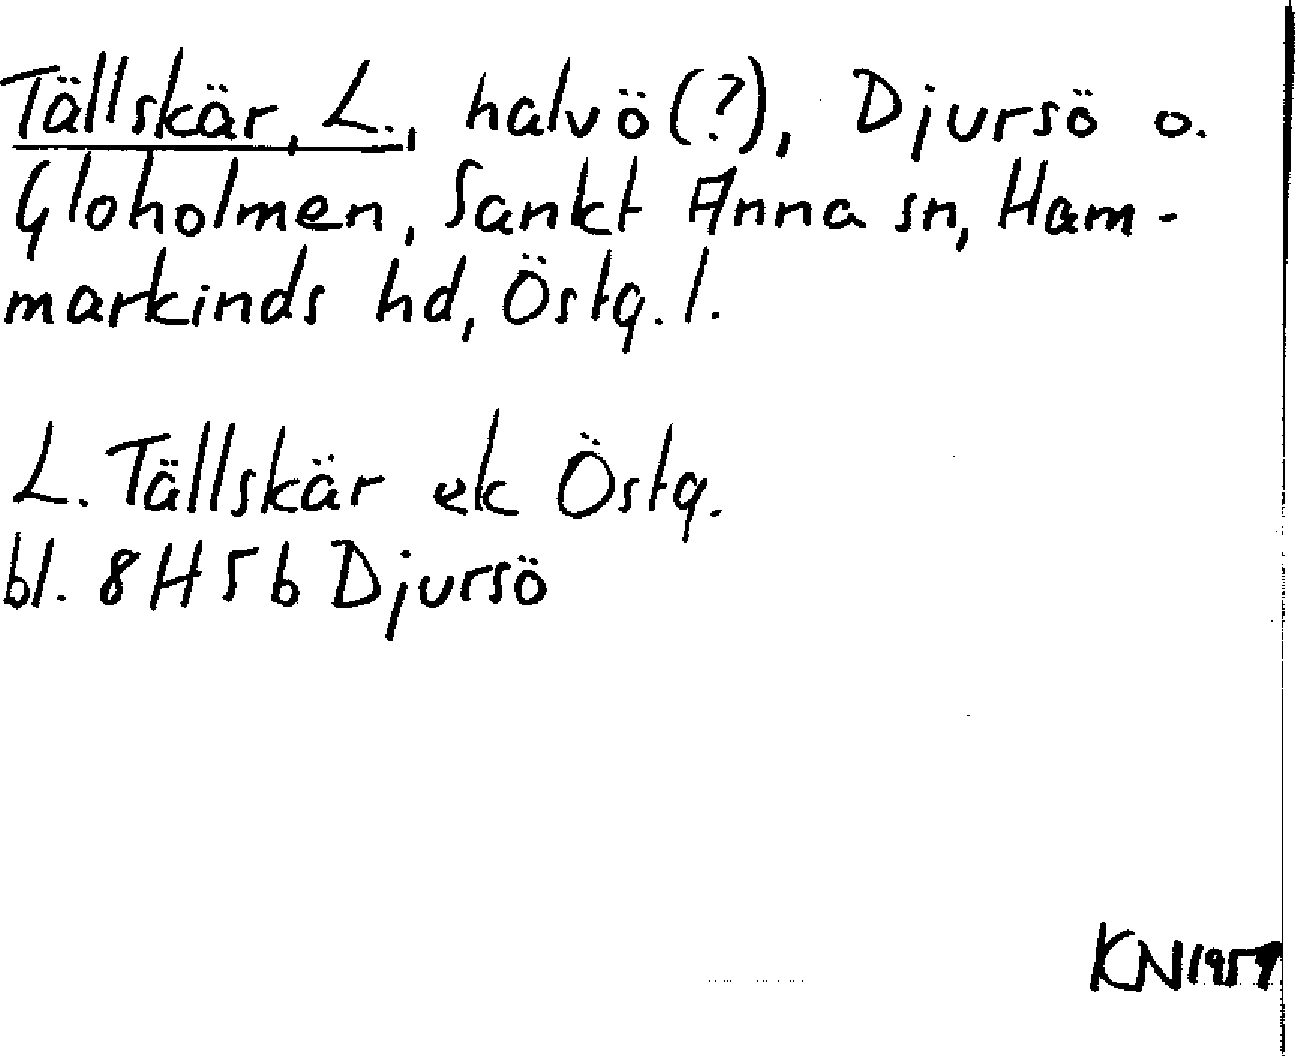 Tällskär, L., halvö (?), Djursö o.
Gloholmen, Sankt Anna sn, Ham-
markinds hd, Östg. l.
L. Tällskär ek Östg.
bl. 8H5b Djursö
KN